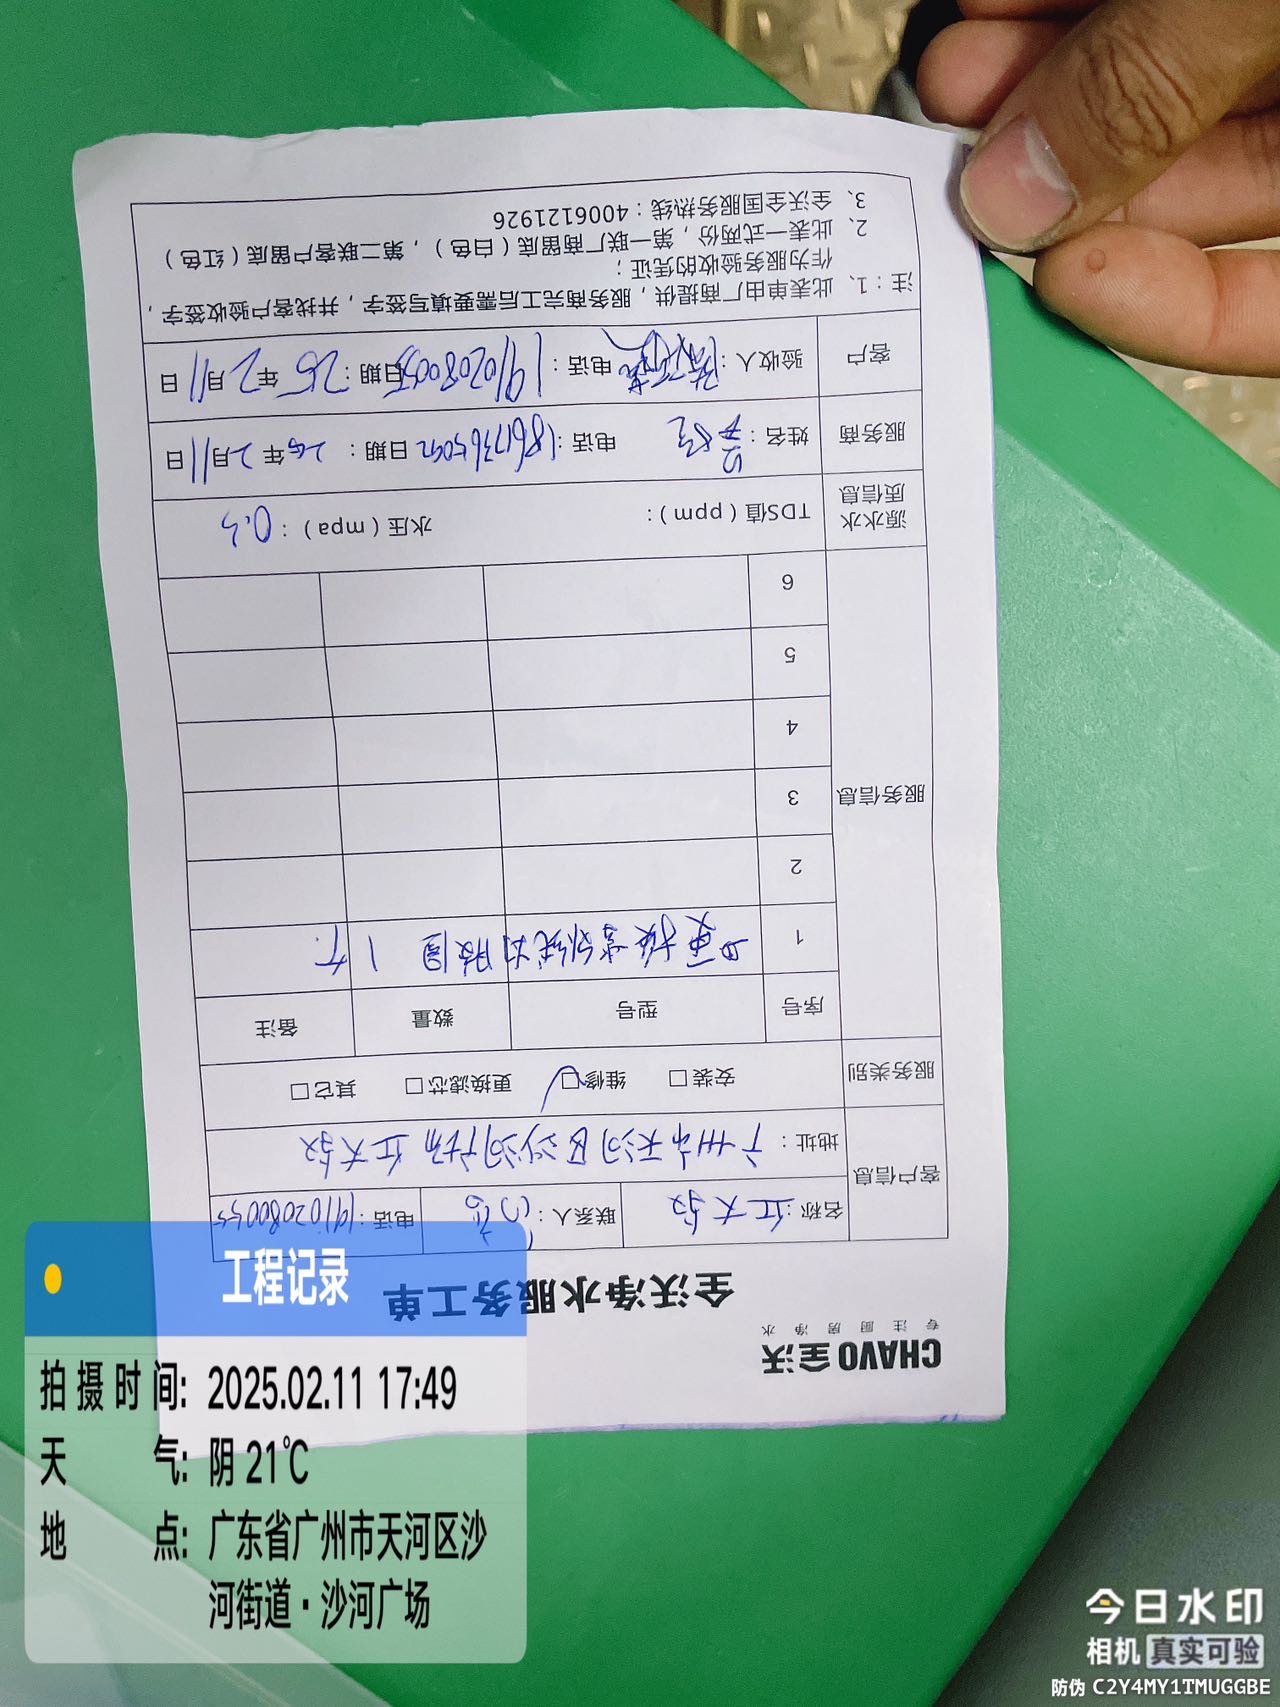 CHAVO 全沃
专注厨房净水
全沃净水服务工单
客户信息
名称：红大叔
联系人：
电话：19102080055
地址：广州市天河区沙河广场 红大叔
服务类别
安装□ 维修□ 更换滤芯□ 其它□
服务信息
序号 型号 数量 备注
1 更换 紫外线灯胶圈 1个
2
3
4
5
6
源水水质信息
TDS值（ppm）： 水压（mpa）：0.3
服务商
姓名： 电话：18617365092 日期：25年2月11日
客户
验收人： 电话：19102080055 日期：25年2月11日
注：1、此表单由厂商提供，服务商完工后需要填写签字，并找客户验收签字，
作为服务验收的凭证；
2、此表一式两份，第一联厂商留底（白色），第二联客户留底（红色）
3、全沃全国服务热线：4006121926
工程记录
拍摄时间: 2025.02.11 17:49
天气: 阴 21℃
地点: 广东省广州市天河区沙
河街道·沙河广场
今日水印
相机 真实可验
防伪 C2Y4MY1TMUGGBE